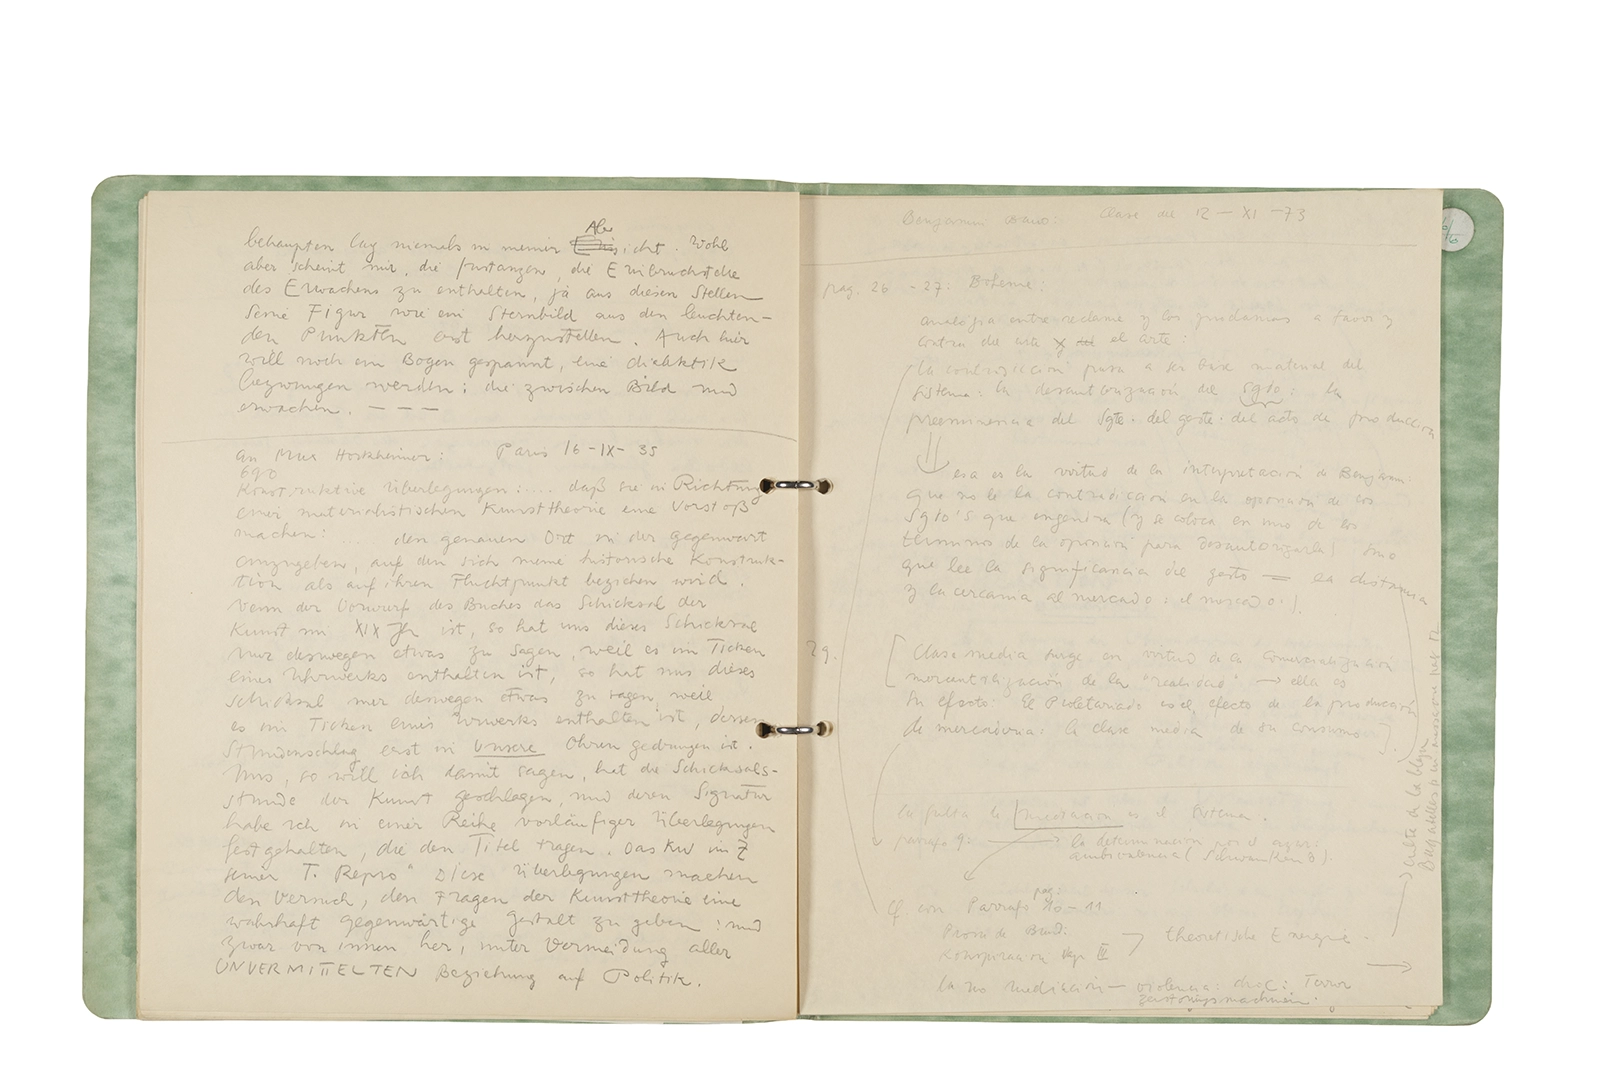 behaupten lag niemals in meiner Absicht. Wohl
aber scheint mir, die Instanzen, die Einbruchstelle
des Erwachens zu enthalten, ja aus diesen Stellen
seine Figur wie ein Sternbild aus den leuchten-
den Punkten erst herzustellen. Auch hier
will noch ein Bogen gespannt, eine Dialektik
bezwungen werden: die zwischen Bild und
erwachen. — — —
an Max Horkheimer: Paris 16-IX-35
690
Konstruktive Überlegungen: .... daß sie in Richtung
einer materialistischen Kunsttheorie eine Vorstoß
machen: ... den genauen Ort in der gegenwart
anzugeben, auf den sich meine historische Konstruk-
tion als auf ihren Fluchtpunkt beziehen wird.
Wenn der Vorwurf des Buches das Schicksal der
Kunst im XIX Jh ist, so hat uns dieses Schicksal
nur deswegen etwas zu sagen, weil es im Ticken
eines Uhrwerks enthalten ist, so hat uns dieses
Schicksal nur deswegen etwas zu sagen weil
es im Ticken eines Urwerks enthalten ist, dessen
Stundenschlag erst in unsere Ohren gedrungen ist.
Uns, so will ich damit sagen, hat die Schicksals-
stunde der Kunst geschlagen, und deren Signatur
habe ich in einer Reihe vorläufiger Überlegungen
festgehalten, die den Titel tragen. "Das KW im Z
seiner T. Repro" Diese Überlegungen machen
den Versuch, den Fragen der Kunsttheorie eine
wahrhaft gegenwärtige gestalt zu geben: und
zwar von innen her, unter Vermeidung aller
UNVERMITTELTEN Beziehung auf Politik.
Benjamin Clase del 12-XI-73
pag. 26-27: Boheme:
analogía entre reclame y los a favor y
contra del arte x el arte:
la contradicción pasa a ser base material del
sistema: la desautorización del Sgto: la
preeminencia del Sgto. del gesto. del acto de producción
esa es la virtud de la interpretación de Benjamin:
que no lee la contradicción en la oposición de los
Sgto's que engendra (y se coloca en uno de los
términos de la oposición para desautorizarla) sino
que lee la significancia del gesto — la distancia
y la cercanía al mercado: el mercado.
29.
[Clase media surge en virtud de la comercialización
mercantilización de la "realidad" → ella es
su efecto: El Proletariado es el efecto de la producción
de mercadería: la clase media de su consumo].
la falta de es el sistema.
parrafo 9: → la determinación por el azar:
ambivalencia (Schwanken B).
Cf. con Parrafo pag: 10-11
Baud:
Konspiracion III theoretische Energie
la no mediación — violencia: Terror
culto a la